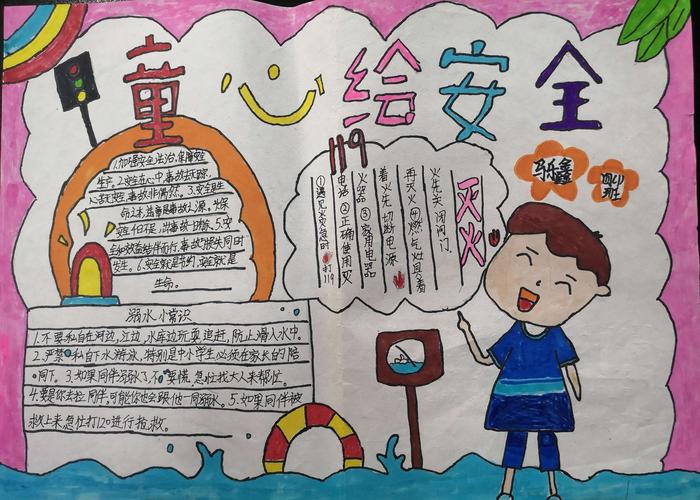 童心给安全
1.加强安全法治,保障安全
生产。2.安全在心中,事故去无踪.
心在安全,事故非偶然。3.安全是生
命之本,违章是事故之源。
安全千日不足,出事故一时嫌.5.安
全和效益结伴而行,事故与损失同时
发生。6.安全就是节约,安全就是
生命。
119
灭火
火先关闭阀门.
再灭火④燃气灶具着
着火先切断电源
火器③家用电器
电话②正确使用灭
①遇见火灾急时打119
马乐鑫
班
溺水小常识
1.不要私自在河边,江边,水库边玩耍追赶,防止滑入水中.
2.严禁私自下水游泳,特别是中小学生必须在家长的陪
同下。3.如果同伴溺水了,不要慌,急忙找大人来帮忙。
4.要是你去拉同伴,可能你也会跟他一同溺水。5.如果同伴被
救上来急忙打120进行抢救。